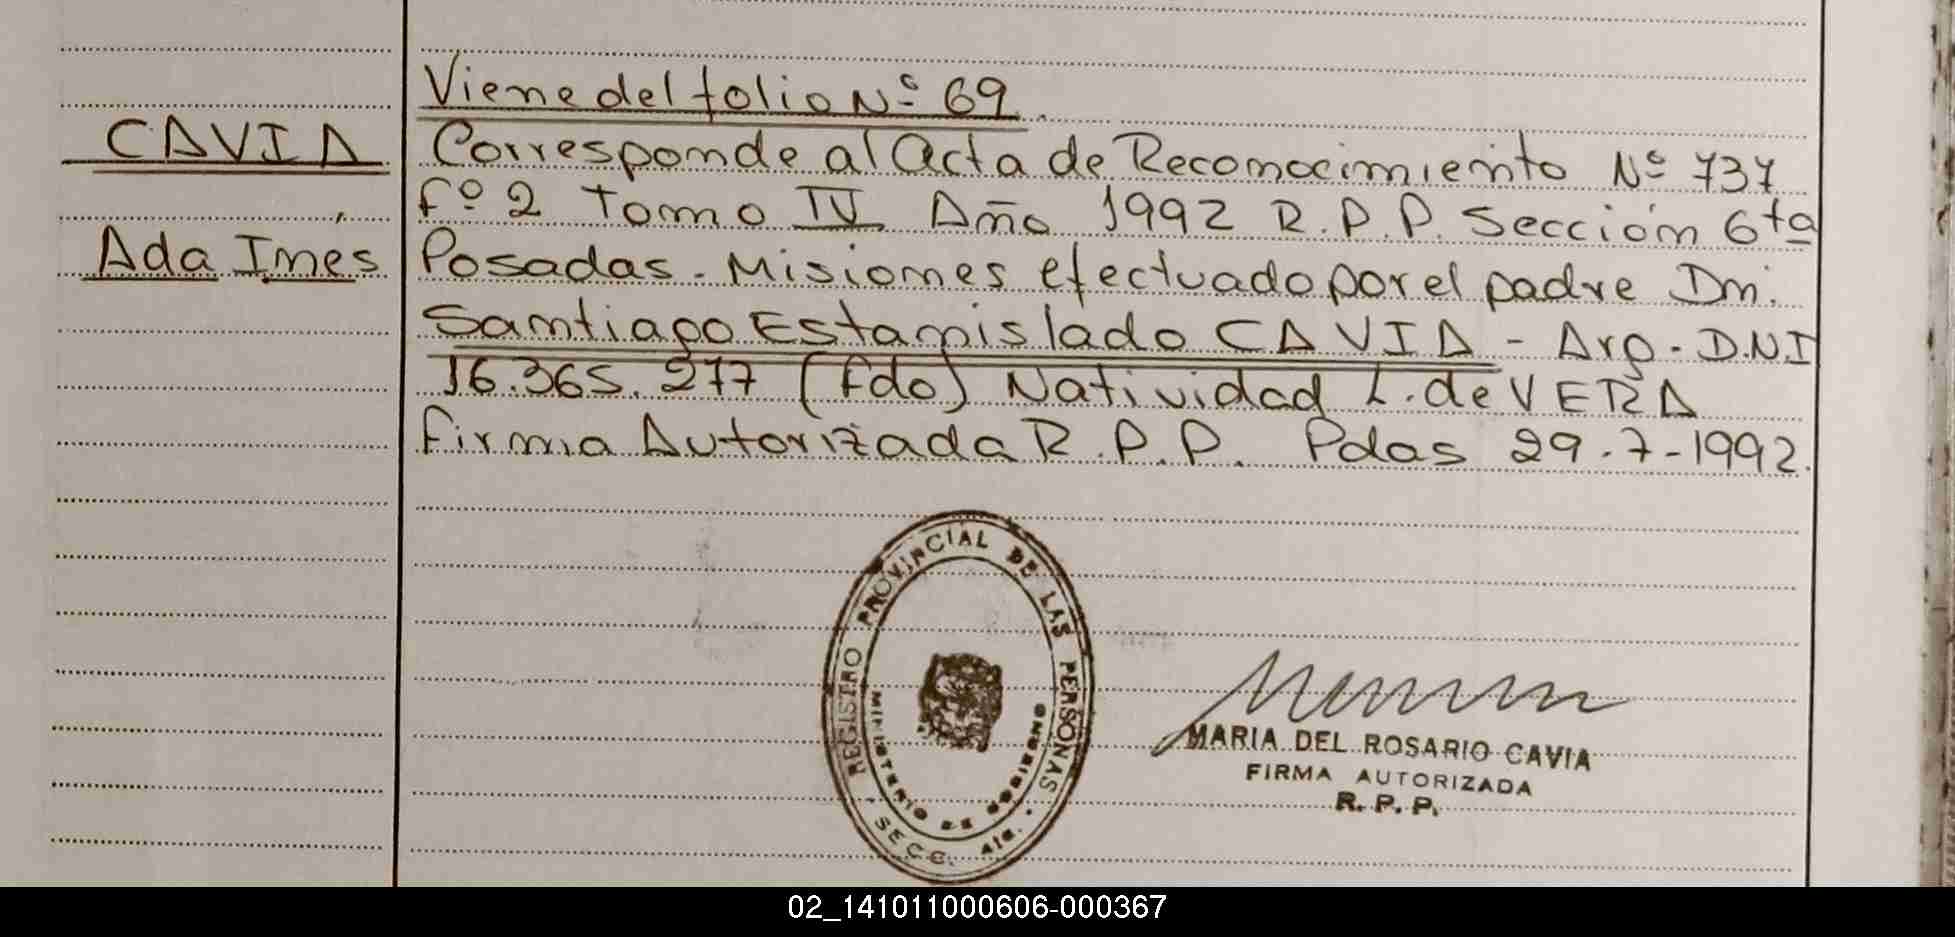 Viene del folio Nº 69.
CAVIA
Corresponde al Acta de Reconocimiento Nº 737
Fº 2 Tomo IV Año 1992 R.P.P. Sección 6ta
Ada Inés
Posadas - Misiones efectuado por el padre Dn.
Santiago Estanislado CAVIA - Arg. D.N.I
16.365.277 (Fdo) Natividad L. de VERA
Firma Autorizada R.P.P. Pdas 29-7-1992.
REGISTRO PROVINCIAL DE LAS PERSONAS
MINISTERIO DE GOBIERNO
SECC. 4ta.
MARIA DEL ROSARIO CAVIA
FIRMA AUTORIZADA
R. P. P.
02_141011000606-000367